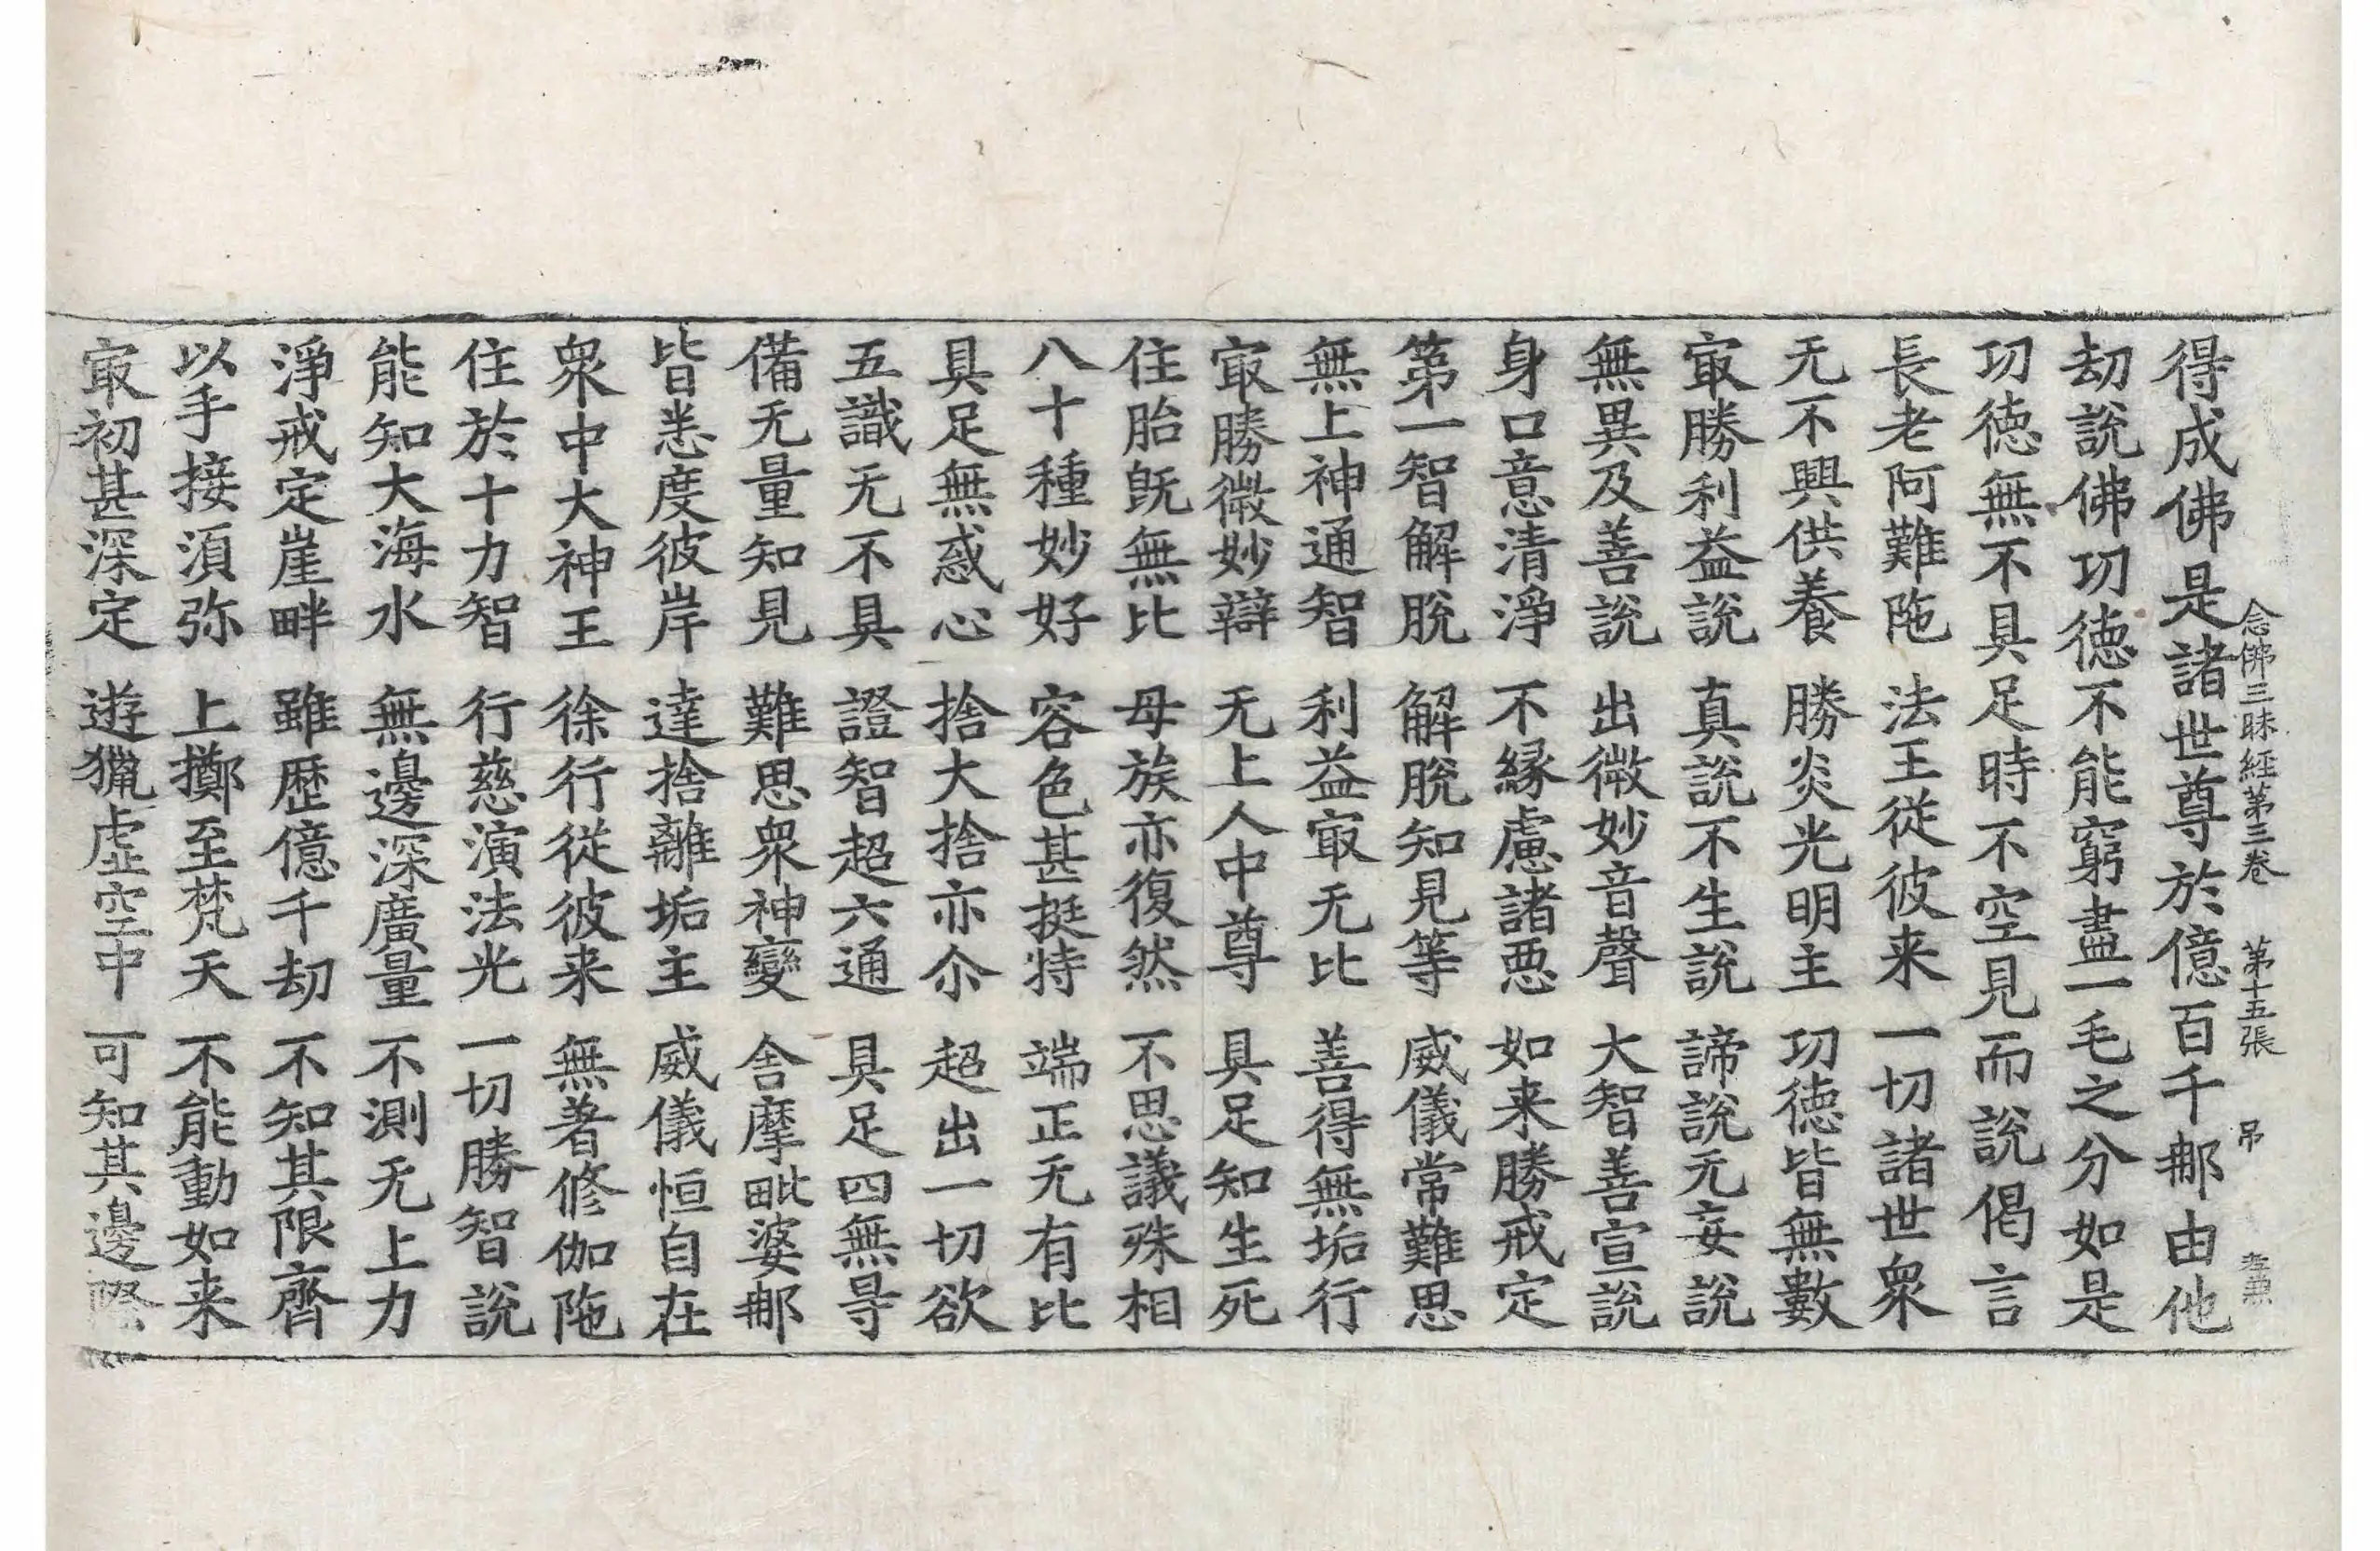 念佛三昧經第三卷 第十五張 吊
得成佛是諸世尊於億百千那由他
劫說佛功德不能窮盡一毛之分如是
功德無不具足時不空見而說偈言
長老阿難陁 法王從彼来 一切諸世衆
无不興供養 勝炎光明主 功德皆無數
㝡勝利益說 真說不生說 諦說无妄說
無異及善說 出微妙音聲 大智善宣說
身口意清淨 不緣慮諸惡 如来勝戒定
第一智解脫 解脫知見等 威儀常難思
無上神通智 利益㝡无比 善得無垢行
㝡勝微妙辯 无上人中尊 具足知生死
住胎旣無比 母族亦復然 不思議殊相
八十種妙好 容色甚挺特 端正无有比
具足無惑心 捨大捨亦尒 超出一切欲
五識无不具 證智超六通 具足四無㝵
備无量知見 難思衆神變 舍摩毗婆那
皆悉度彼岸 達捨離垢主 威儀恒自在
衆中大神王 徐行從彼来 無著修伽陁
住於十力智 行慈演法光 一切勝智說
能知大海水 無邊深廣量 不測无上力
淨戒定崖畔 雖歷億千劫 不知其限齊
以手接須弥 上擲至梵天 不能動如来
㝡初甚深定 遊獵虛空中 可知其邊際